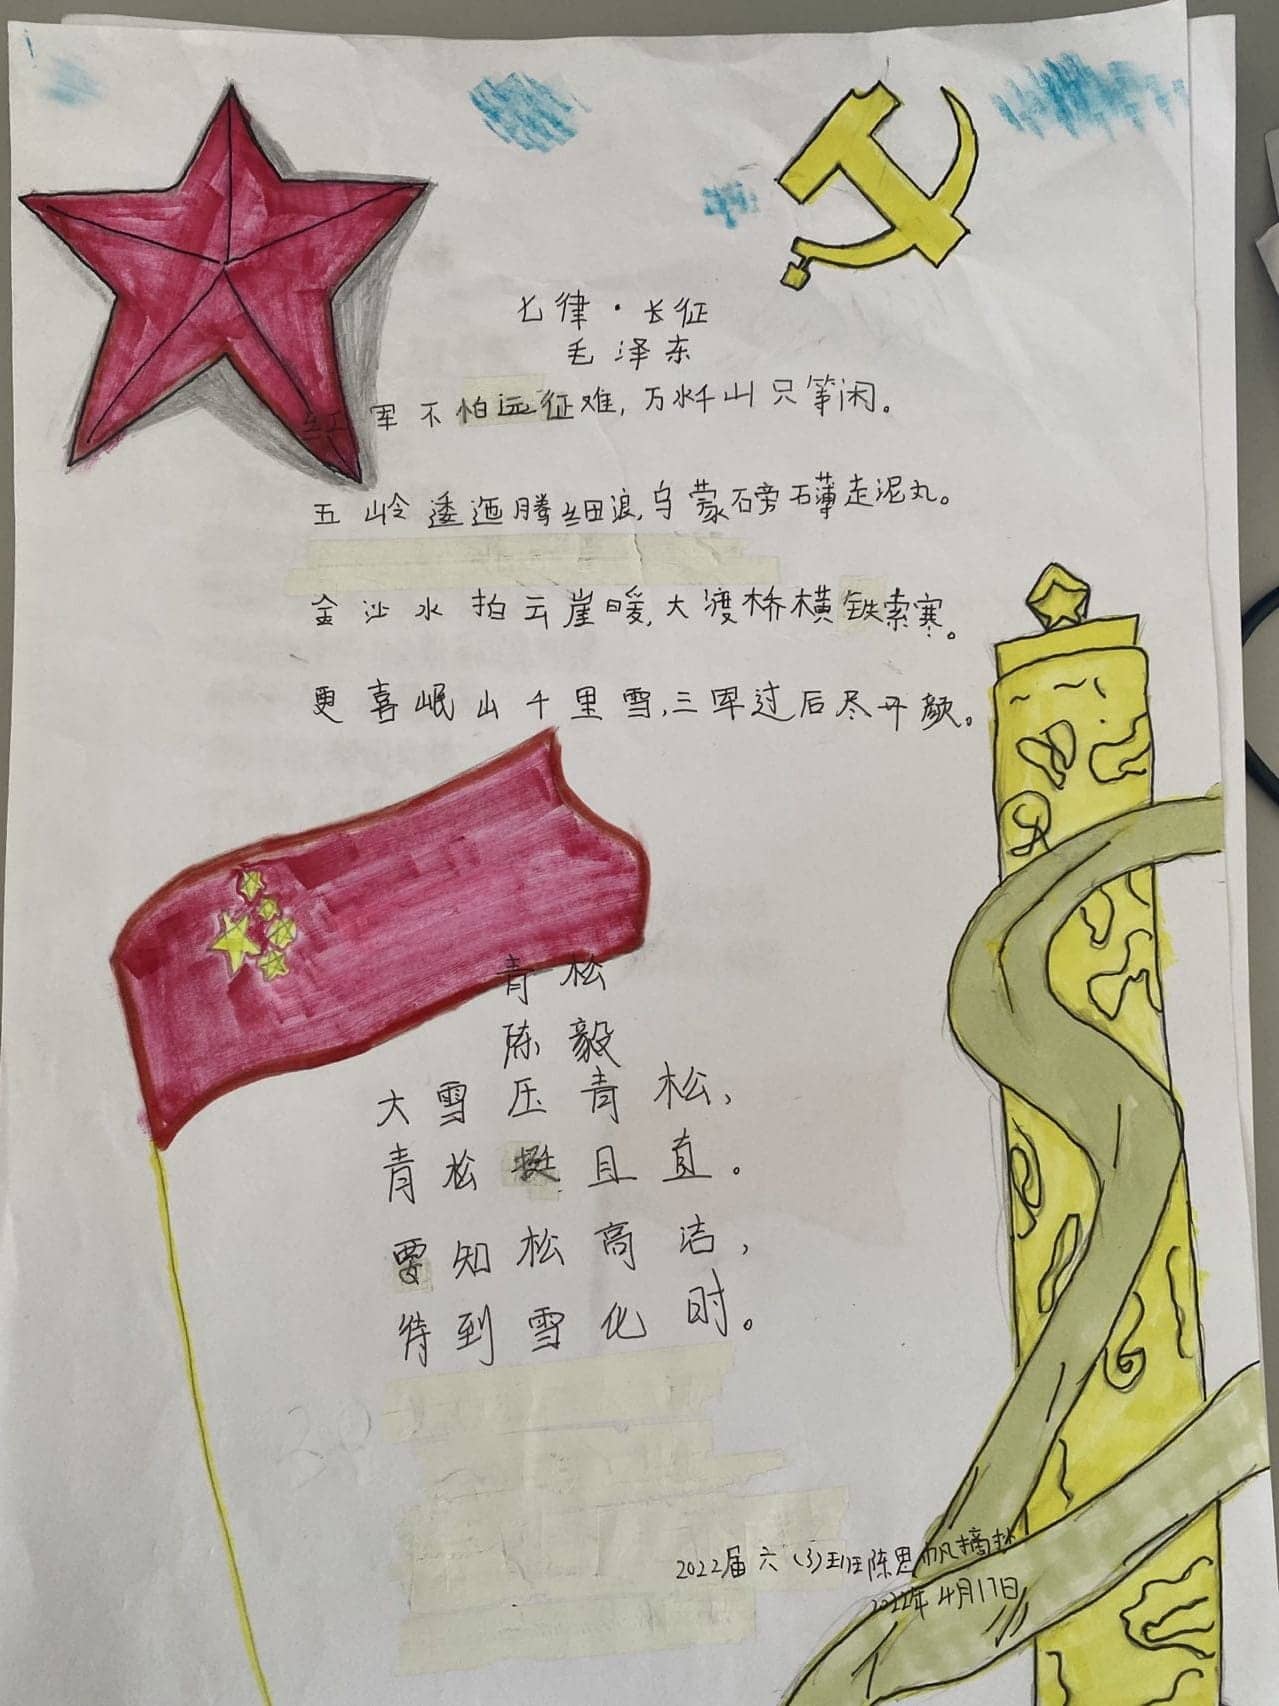 七律·长征
毛泽东
红军不怕远征难,万水千山只等闲。
五岭逶迤腾细浪,乌蒙磅礴走泥丸。
金沙水拍云崖暖,大渡桥横铁索寒。
更喜岷山千里雪,三军过后尽开颜。
青松
陈毅
大雪压青松,
青松挺且直。
要知松高洁,
待到雪化时。
2022届六(3)班陈思帆摘抄
2022年4月17日